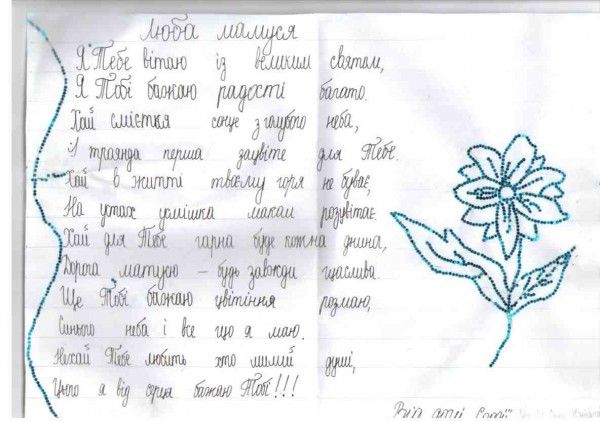 Люба мамуся
Я Тебе вітаю із великим святом,
Я Тобі бажаю радості багато.
Хай сміється сонце з голубого неба,
І троянда перша зацвіте для Тебе.
Хай в житті твоєму горя не буває,
На устах усмішка маком розцвітає.
Хай для Тебе гарна буде кожна днина,
Дорога матусю – будь завжди щаслива.
Ще Тобі бажаю цвітіння розмаю,
Синього неба і все що я маю.
Нехай Тебе любить хто милий душі,
Цього я від серця бажаю Тобі!!!
Від